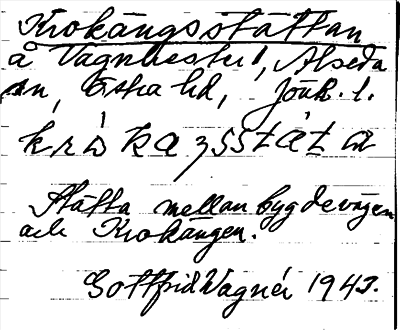 Krokängsstättan
å Vagnhester, Alseda
sn, Östra hd, Jönk. l.
Stätta mellan bygdevägen
och Krokängen.
Gottfrid Wagnér 1943.